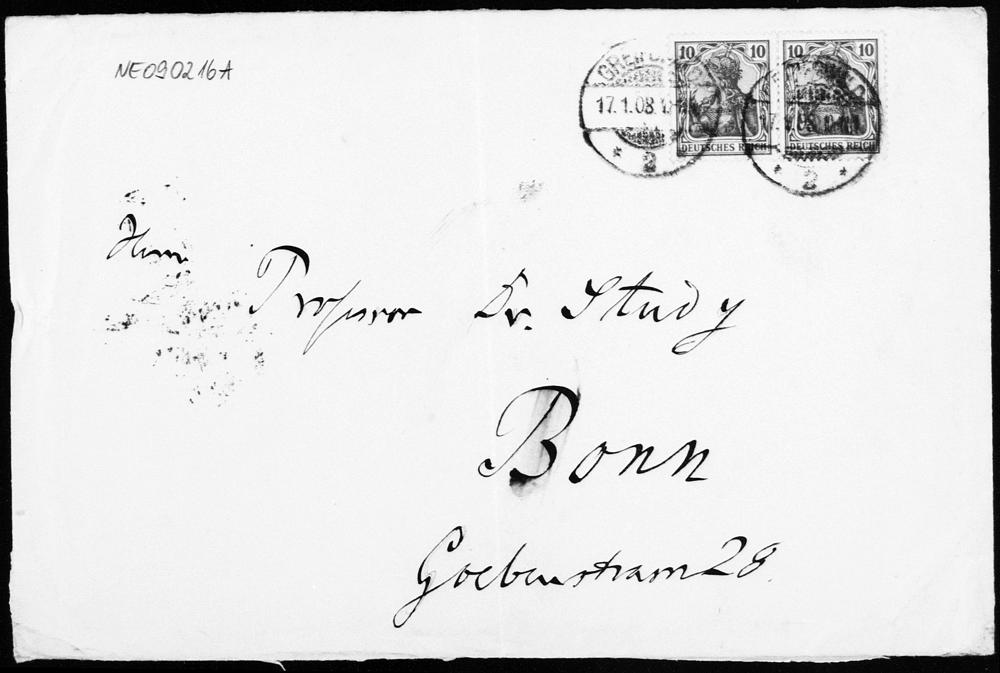 NE090216A
10 10
DEUTSCHES REICH
10 10
DEUTSCHES REICH
17.1.08.
* 2 *
* 2 *
Herrn
Professor Dr. Study
Bonn
Goebenstrasse 28.